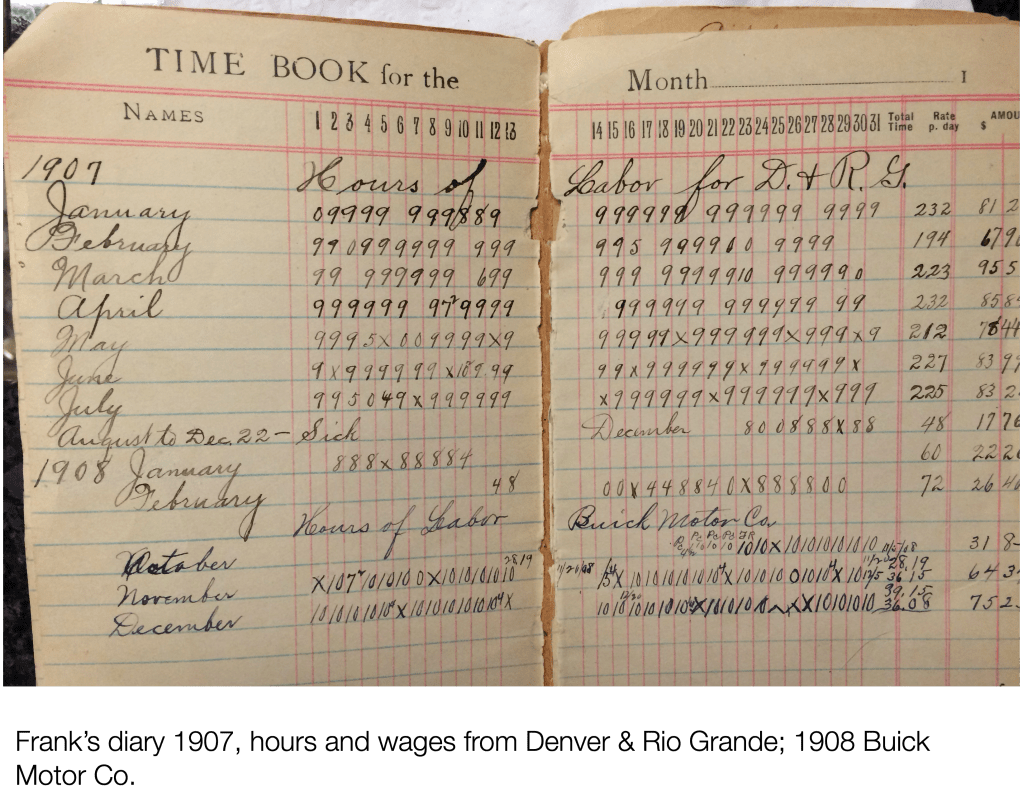 TIME BOOK for the Month 1
NAMES 1 2 3 4 5 6 7 8 9 10 11 12 13 14 15 16 17 18 19 20 21 22 23 24 25 26 27 28 29 30 31 Total Time Rate p. day AMOU $
1907 Hours of Labor for D. & R. G.
January 09999 999889 999999 999999 9999 232 81 2
February 990999999 999 995 9999 9999 194 6790
March 99 999999 699 999 9999910 999990 223 95 5
April 999999 9 9999 999999 999999 99 232 858
May 9995x009999x9 99999x999999x999x9 212 44
June 9x999999x 99 99x999999x999999x 227 839
July 995049x999999 x999999x999999x999 225 83 2
August to Dec. 22 - Sick December 800888x88 48 17 76
1908 January 888x88884 60 22 2
February 48 00x448840x888800 72 26 4
Hours of Labor Buick Motor Co.
October 1010x10101010101010 31 8
November 28.19 643
December 36.08 752
Frank's diary 1907, hours and wages from Denver & Rio Grande; 1908 Buick
Motor Co.